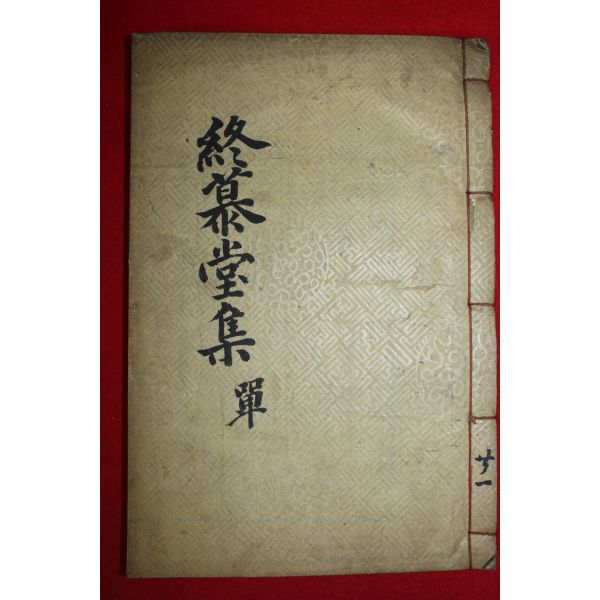 終慕堂集 單
共一